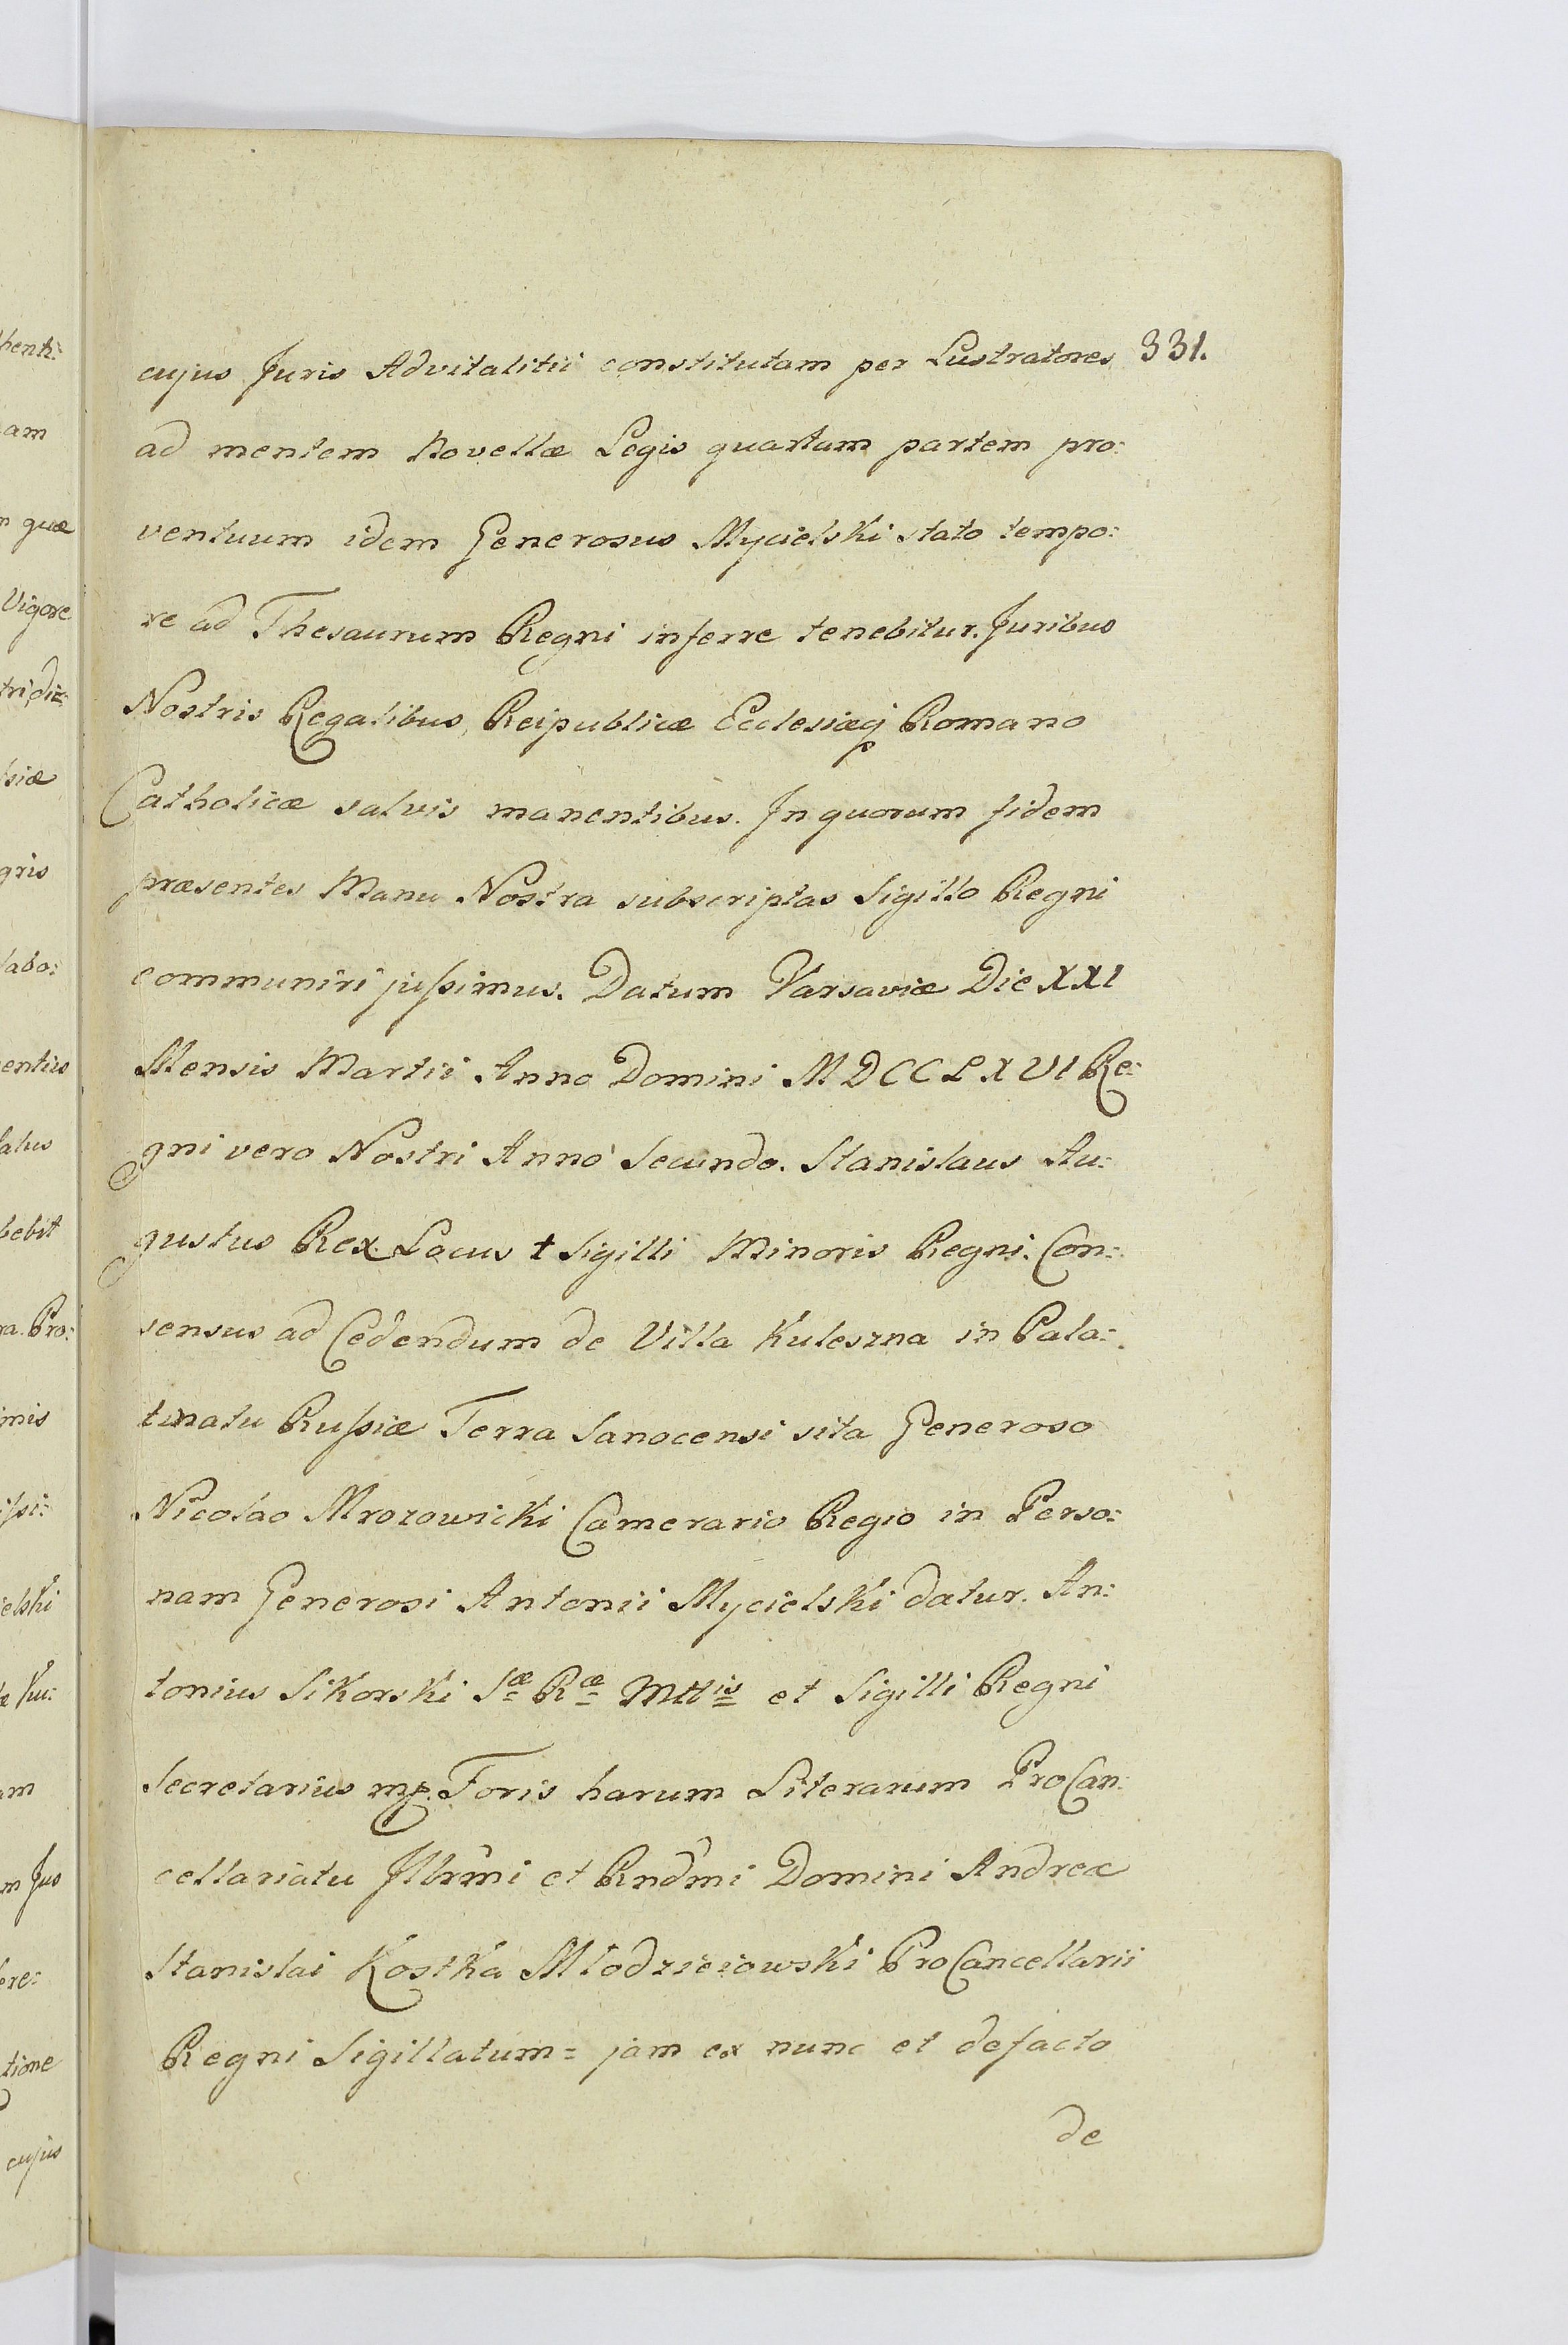 331.
cujus Juris Advitalitii constitutam per Lustratores
ad mentem Novellæ Legis quartam partem pro:
ventuum idem Generosus Mycielski stato tempo:
re ad Thesaurum Regni inferre tenebitur. Juribus
Nostris Regalibus, Reipublicæ Ecclesiæq Romano
Catholicæ salvis manentibus. In quorum fidem
præsentes Manu Nostra subscriptas Sigillo Regni
communiri jussimus. Datum Varsaviæ Die XXI
Mensis Martii Anno Domini MDCCLXVI Re:
gni vero Nostri Anno Secundo. Stanislaus Au:
gustus Rex. Locus † Sigilli Minoris Regni. Con:
sensus ad Cedendum de Villa Kuleszna in Pala:
tinatu Russiæ Terra Sanocensi sita Generoso
Nicolao Mrozowicki Camerario Regio in Perso:
nam Generosi Antonii Mycielski datur. An:
tonius Sikorski Sæ Ræ Mttis et Sigilli Regni
Secretarius mp. Foris harum Literarum ProCan:
cellariatu Illrmi et Rndmi Domini Andreæ
Stanislai Kostka Młodzieiowski ProCancellarii
Regni Sigillatum = jam ex nunc et defacto
de
am
quæ
Vigore
siæ
gris
labo:
entius
bebit
ra. Pro:
mis
elski
Ku:
am
m Jus
ere:
tione
cujus